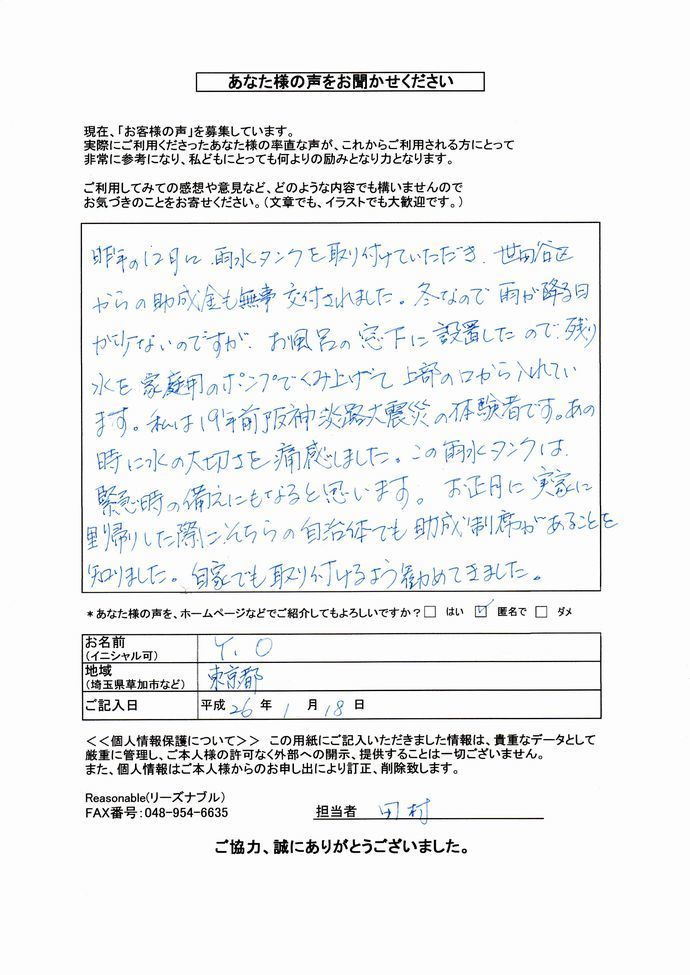 あなた様の声をお聞かせください
現在、「お客様の声」を募集しています。
実際にご利用くださったあなた様の率直な声が、これからご利用される方にとって
非常に参考になり、私どもにとっても何よりの励みとなり力となります。
ご利用してみての感想や意見など、どのような内容でも構いませんので
お気づきのことをお寄せください。(文章でも、イラストでも大歓迎です。)
昨年の12月に雨水タンクを取り付けていただき、世田谷区
からの助成金も無事交付されました。冬なので雨が降る日
が少ないのですが、お風呂の窓下に設置したので、残り
水を家庭用のポンプでくみ上げて上部の口から入れてい
ます。私は19年前阪神淡路大震災の体験者です。あの
時に水の大切さを痛感しました。この雨水タンクは、
緊急時の備えにもなると思います。お正月に実家に
里帰りした際にそちらの自治体でも助成制度があることを
知りました。自家でも取り付けるよう勧めてきました。
*あなた様の声を、ホームページなどでご紹介してもよろしいですか?□ はい ☑ 匿名で □ ダメ
お名前
(イニシャル可)
Y.O
地域
(埼玉県草加市など)
東京都
ご記入日 平成 26 年 1 月 18 日
<<個人情報保護について>> この用紙にご記入いただきました情報は、貴重なデータとして
厳重に管理し、ご本人様の許可なく外部への開示、提供することは一切ございません。
また、個人情報はご本人様からのお申し出により訂正、削除致します。
Reasonable(リーズナブル)
FAX番号:048-954-6635 担当者 田村
ご協力、誠にありがとうございました。